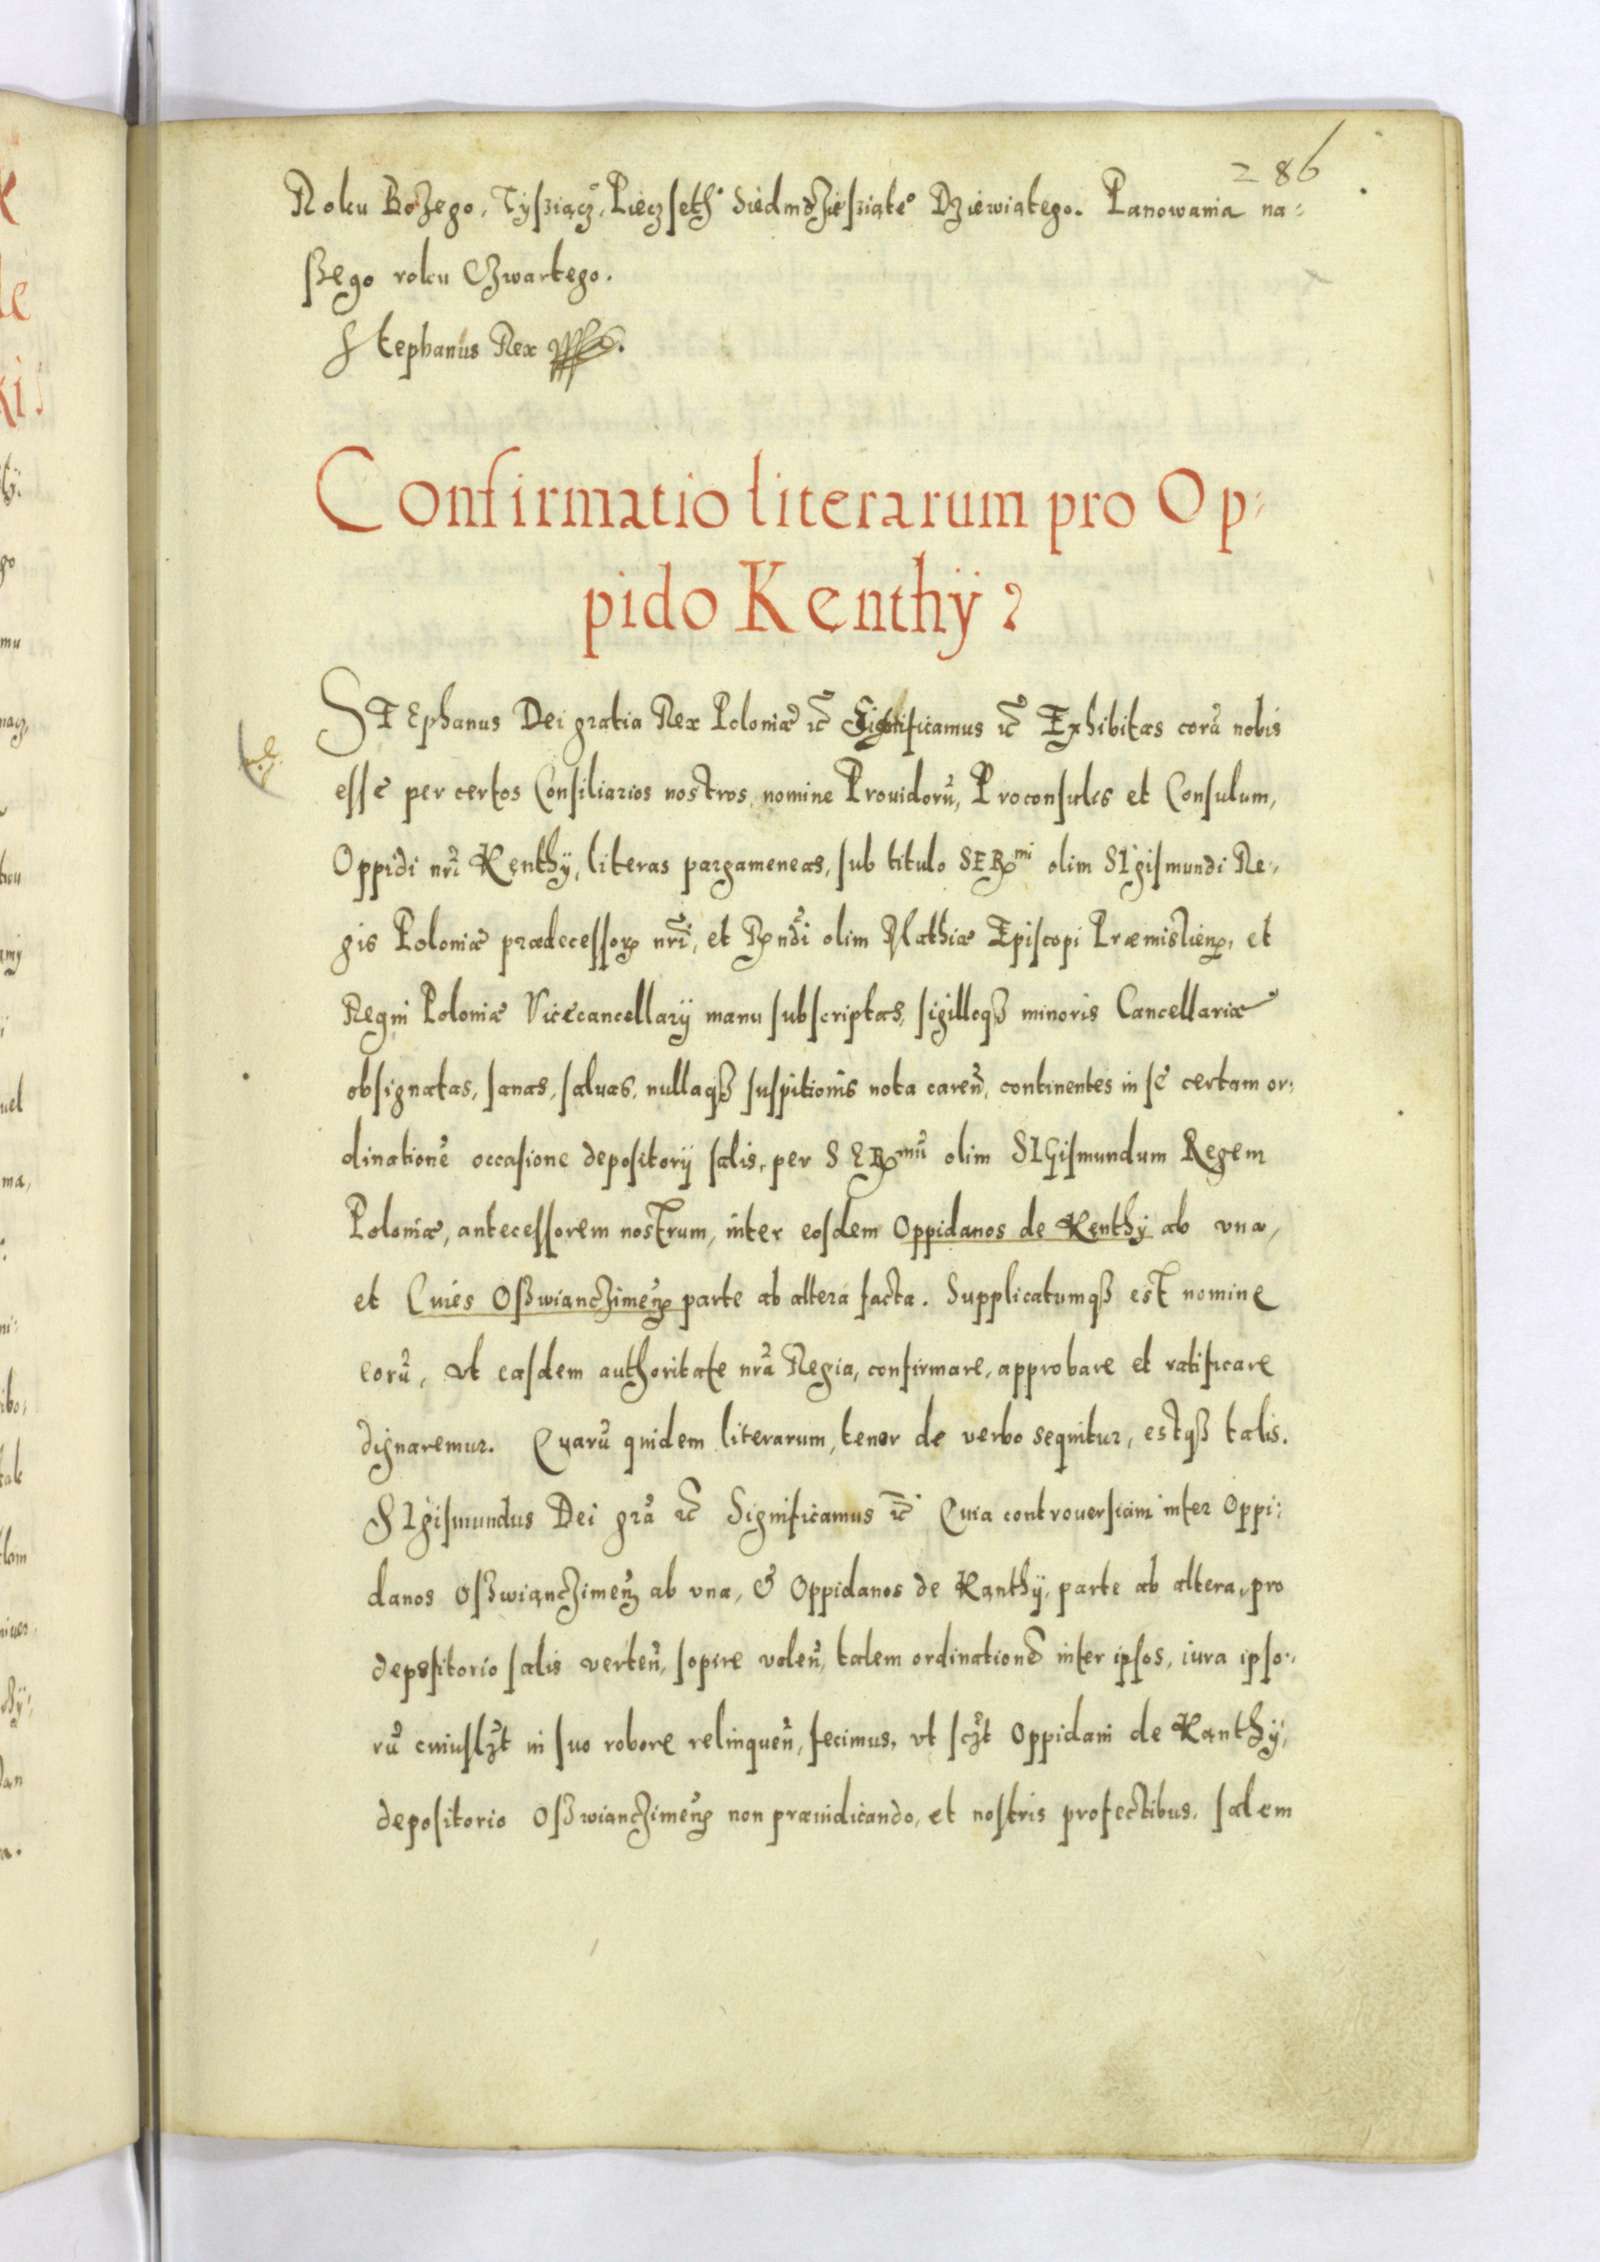 286
Roku Bożego, Tysziącz, Pięczseth Siedmdzięsziąte° Dziewiątego. Panowania na:
szego roku Czwartego.
Stephanus Rex
Confirmatio literarum pro Op:
pido Kenthÿ
STEphanus Dei gratia Rex Poloniæ ꝛc̃ Significamus ꝛc̃ Exhibitas corã nobis
esse per certos Consiliarios nostros, nomine Prouidorũ, Proconsulis et Consulum,
Oppidi nr̃i Kęnthÿ, literas pargameneas, sub titulo SERmi olim SIgismundi Re:
gis Poloniæ prædecessorꝭ nr̃i, et Rndi olim Mathiæ Episcopi Præmislienꝭ, et
Regni Poloniæ Vicecancellarÿ manu subscriptas, sigilloqß minoris Cancellariæ
obsignatas, sanas, saluas, nullaqß suspitionis nota careñ, continentes in se certam or:
dinationẽ occasione depositorÿ salis, per SERmũ olim SIGismundum Regem
Poloniæ, antecessorem nostrum, inter eosdem Oppidanos de Kęnthÿ ab vna,
et Cuies Oßwiancżimenꝭ parte ab altera facta. Supplicatumqß est nomine
eorũ, vt easdem authoritate nr̃a Regia, confirmare, approbare et ratificare
dignaremur. Quarũ quidem literarum, tenor de verbo sequitur, estqß talis.
SIgismundus Dei gr̃a ꝛc̃ Significamus ꝛc̃ Quia controuersiam inter Oppi:
danos Oßwiancżimenꝭ ab vna, & Oppidanos de Kanthÿ, parte ab altera, pro
depositorio salis verteñ, sopire voleñ, talem ordinationẽ inter ipsos, iura ipso:
rũ cuiuslꝫt in suo robore relinqueñ, fecimus, vt scꝫt Oppidani de Kanthÿ,
depositorio Oßwiancżimenꝭ non præiudicando, et nostris profectibus, salem